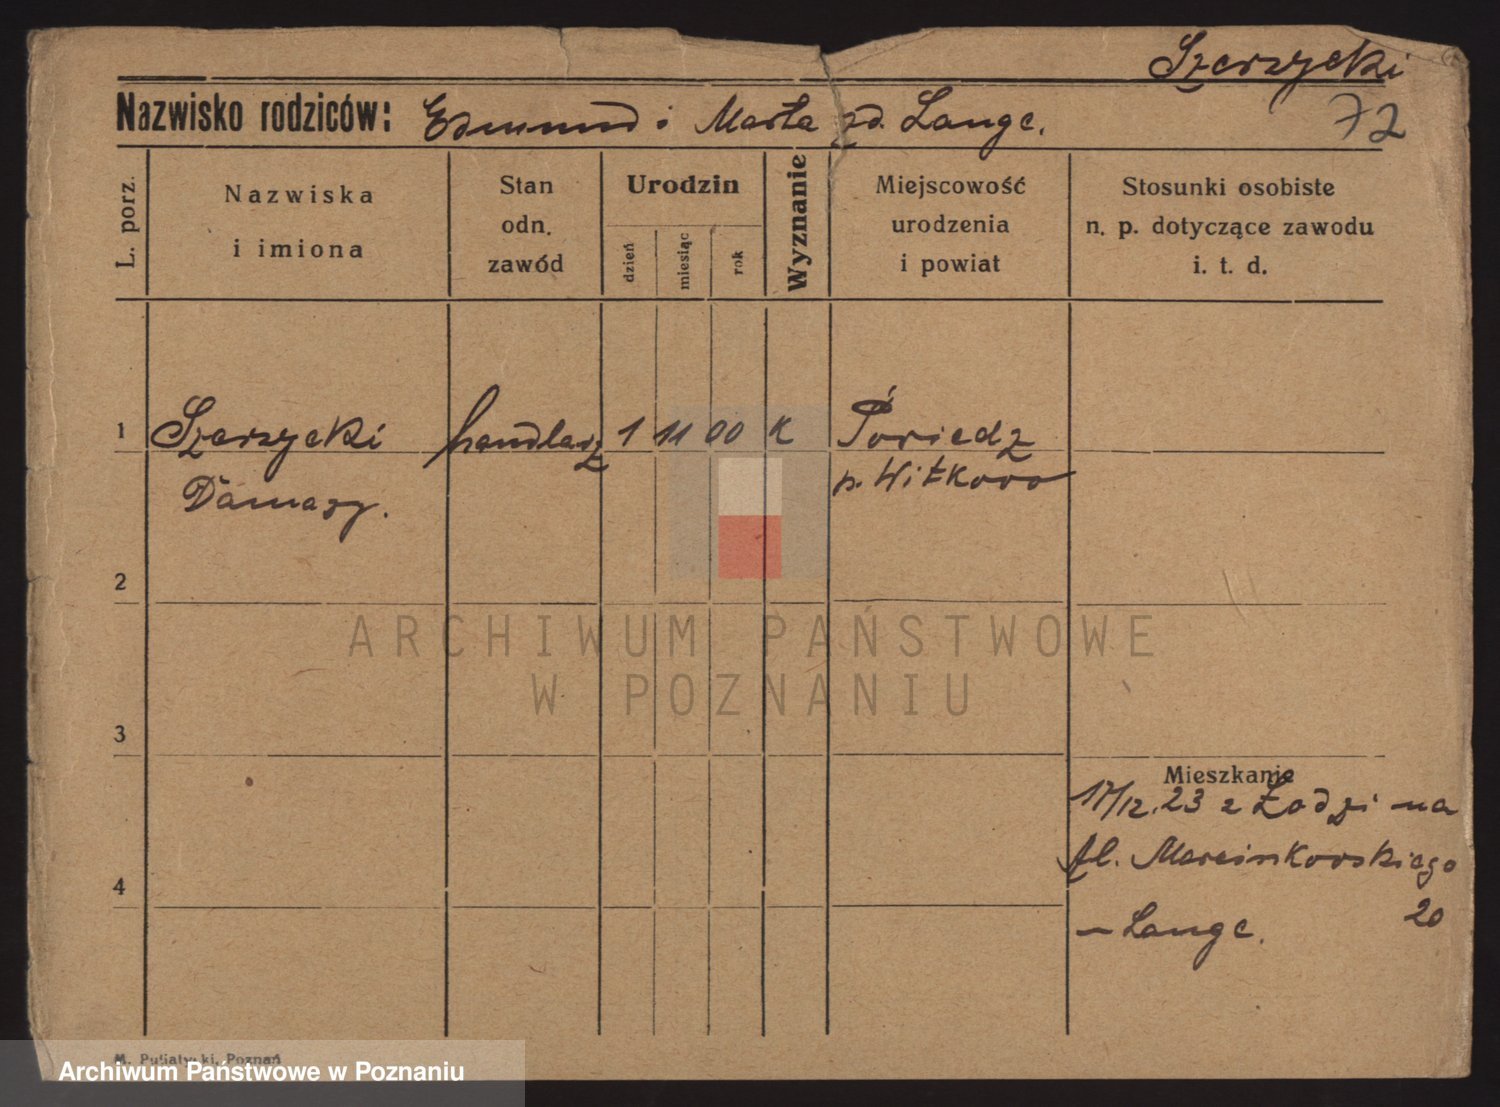 Szerzycki
Nazwisko rodziców: Edmund i Marta zd. Lange.
72
L. porz.
Nazwiska
i imiona
Stan
odn.
zawód
Urodzin
dzień
miesiąc
rok
Wyznanie
Miejscowość
urodzenia
i powiat
Stosunki osobiste
n. p. dotyczące zawodu
i. t. d.
1 Szerzycki handlarz 1 11 00 K
Damazy. p. Witkowo
2
3
4
Mieszkanie
17/12.23 z Łodzi na
Pl. Marcinkowskiego
20
– Lange.
ARCHIWUM PAŃSTWOWE
W POZNANIU
M. Putiatycki, Poznań
Archiwum Państwowe w Poznaniu